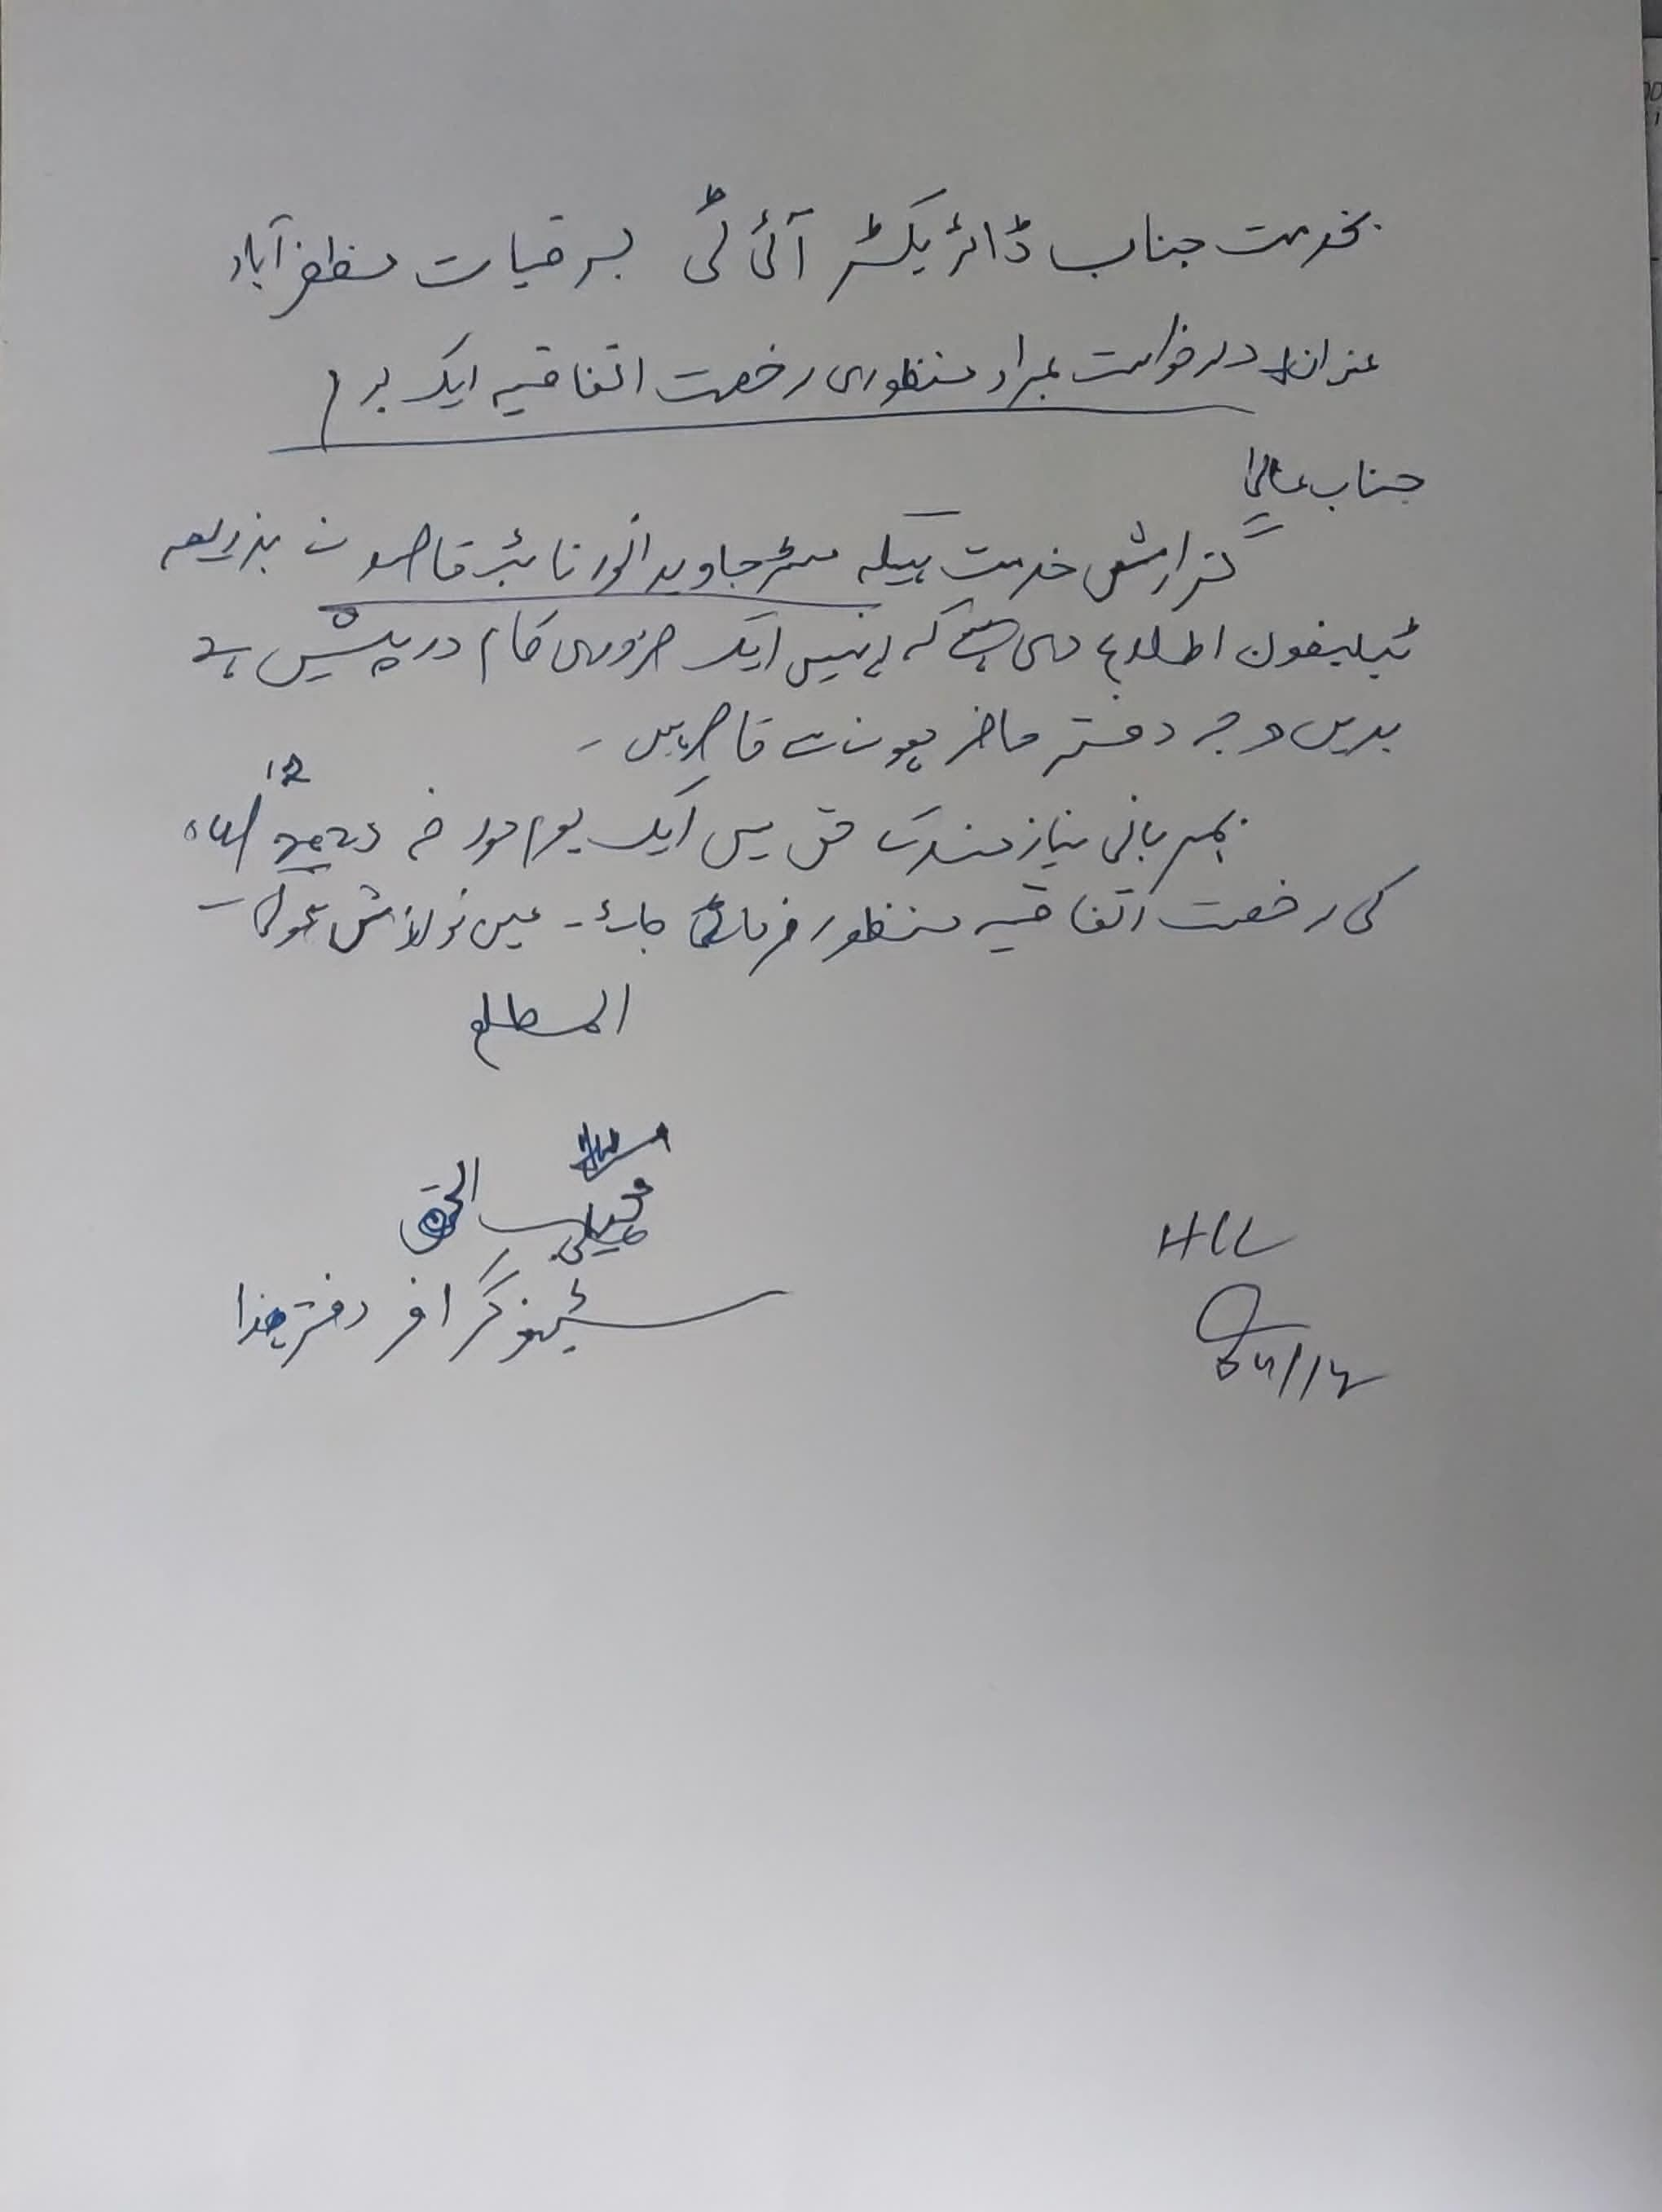 بخدمت جناب ڈائریکٹر آئی ٹی برقیات مظفرآباد
عنوان درخواست بمراد منظوری رخصت اتفاقیہ ایک یوم
جناب عالی
گزارش خدمت ہیکہ مسٹر جاوید انور نائب قاصد نے بذریعہ
ٹیلیفون اطلاع دی ہے کہ انہیں ایک ضروری کام درپیش ہے
بدیں وجہ دفتر حاضر ہونے سے قاصر ہیں -
بمہربانی نیازمند کے حق میں ایک یوم مورخہ 04/12 2025
کی رخصت اتفاقیہ منظور فرمائی جائے - عین نوازش ہوگی -
المطلع
الحق
سٹینوگرافر دفتر ہذا
04/12